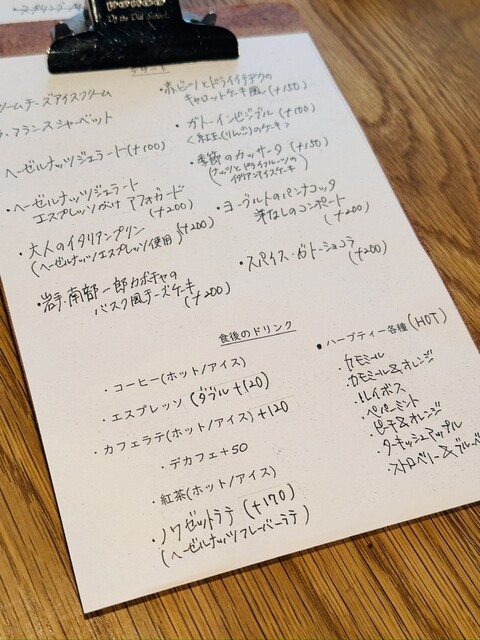 Up the Old School.
デザート
リームチーズアイスクリーム
ラ・フランスシャーベット
ヘーゼルナッツジェラート(+100)
・ヘーゼルナッツジェラート
エスプレッソがけ アフォガード
(+200)
・大人のイタリアンプリン
(ヘーゼルナッツエスプレッソ使用)(+200)
・岩手.南部一郎カボチャの
バスク風チーズケーキ
(+200)
・赤ビーツとドライイチヂクの
キャロットケーキ風(+150)
・ガトーインビジブル(+100)
<紅玉(りんご)のケーキ>
・季節のカッサータ(+150)
(ナッツとドライフルーツの
イタリアンアイスケーキ
・ヨーグルトのパンナコッタ
洋なしのコンポート
(+200)
・スパイス・ガトーショコラ
(+200)
食後のドリンク
・コーヒー(ホット/アイス)
・エスプレッソ(ダブル+120)
・カフェラテ(ホット/アイス)+120
・デカフェ+50
・紅茶(ホット/アイス)
・ノワゼットラテ(+170)
(ヘーゼルナッツフレーバーラテ)
●ハーブティー各種(HOT)
・カモミール
・カモミール&オレンジ
・ルイボス
・ペパーミント
・ピーチ&オレンジ
・ターキッシュアップル
・ストロベリー&ブルーベ